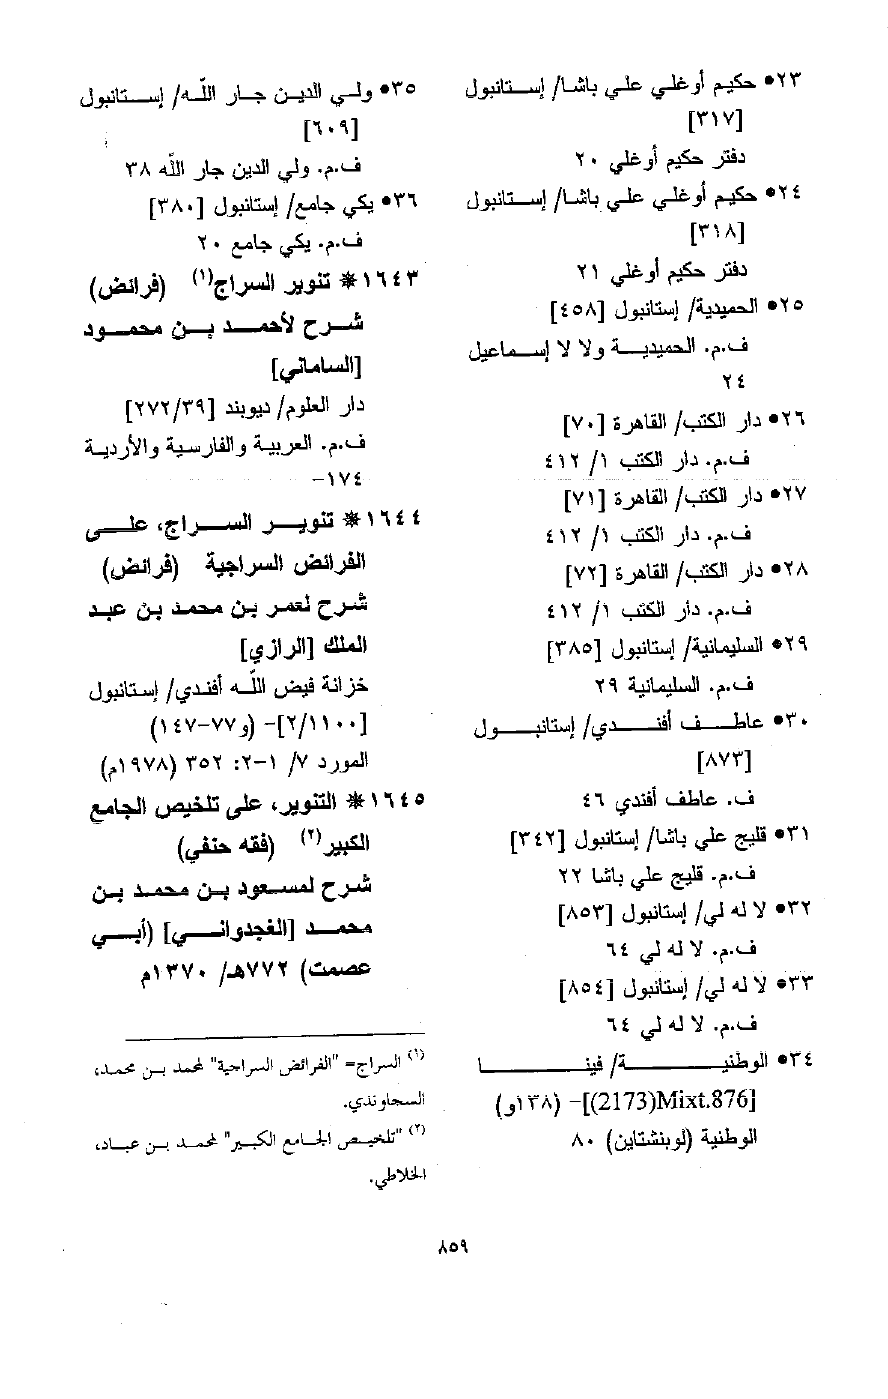 ٢٣• حكيم أوغلي علي باشا/ إستانبول
[٣١٧]
دفتر حكيم أوغلي ٢٠
٢٤• حكيم أوغلي علي باشا/ إستانبول
[٣١٨]
دفتر حكيم أوغلي ٢١
٢٥• الحميدية/ إستانبول [٤٥٨]
ف.م. الحميدية ولا لا إسماعيل
٢٤
٢٦• دار الكتب/ القاهرة [٧٠]
ف.م. دار الكتب ١/ ٤١٢
٢٧• دار الكتب/ القاهرة [٧١]
ف.م. دار الكتب ١/ ٤١٢
٢٨• دار الكتب/ القاهرة [٧٢]
ف.م. دار الكتب ١/ ٤١٢
٢٩• السليمانية/ إستانبول [٣٨٥]
ف.م. السليمانية ٢٩
٣٠• عاطف أفندي/ إستانبول
[٨٧٣]
ف. عاطف أفندي ٤٦
٣١• قليج علي باشا/ إستانبول [٣٤٢]
ف.م. قليج علي باشا ٢٢
٣٢• لا له لي/ إستانبول [٨٥٣]
ف.م. لا له لي ٦٤
٣٣• لا له لي/ إستانبول [٨٥٤]
ف.م. لا له لي ٦٤
٣٤• الوطنية/ فينا
[Mixt.876(2173)]- (١٣٨و)
الوطنية (لوبنشتاين) ٨٠
٣٥• ولي الدين جار اللّه/ إستانبول
[٦٠٩]
ف.م. ولي الدين جار اللّه ٣٨
٣٦• يكي جامع/ إستانبول [٣٨٠]
ف.م. يكي جامع ٢٠
١٦٤٣* تنوير السراج(١) (فرائض)
شرح لأحمد بن محمود
[الساماني]
دار العلوم/ ديوبند [٢٧٢/٣٩]
ف.م. العربية والفارسية والأردية
١٧٤-
١٦٤٤* تنوير السراج، على
الفرائض السراجية (فرائض)
شرح لعمر بن محمد بن عبد
الملك [الرازي]
خزانة فيض اللّه أفندي/ إستانبول
[٢/١١٠٠]- (و٧٧-١٤٧)
المورد ٧/ ١-٢: ٣٥٢ (١٩٧٨م)
١٦٤٥* التنوير، على تلخيص الجامع
الكبير(٢) (فقه حنفي)
شرح لمسعود بن محمد بن
محمد [الغجدواني] (أبي
عصمت) ٧٧٢هـ/ ١٣٧٠م
(١) السراج= "الفرائض السراجية" لمحمد بن محمد،
السجاوندي.
(٢) "تلخيص الجامع الكبير" لمحمد بن عباد،
الخلاطي.
٨٥٩